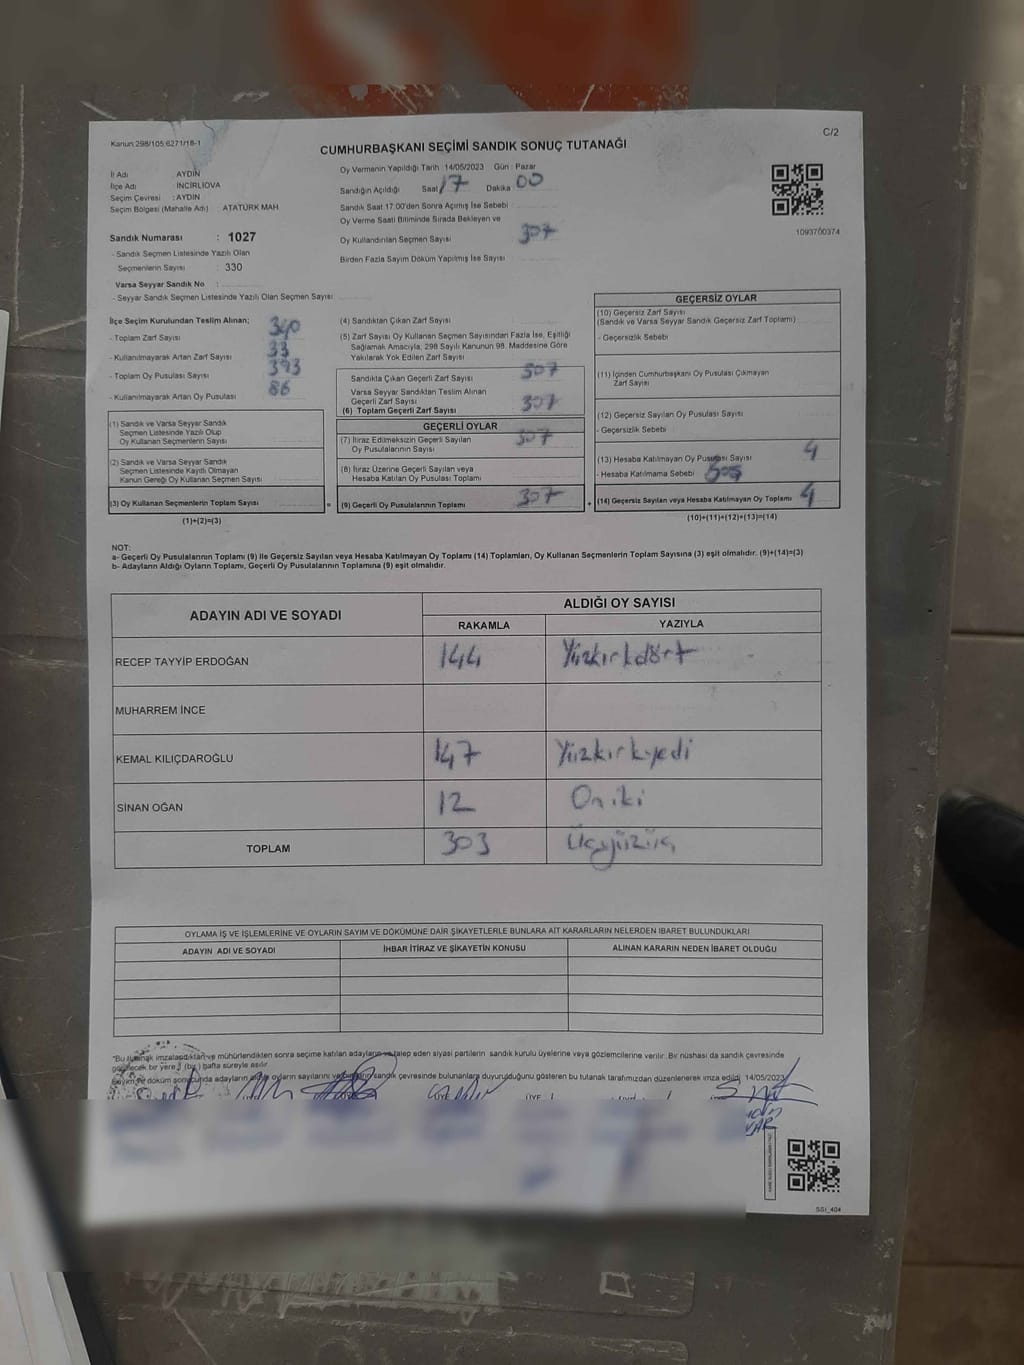 C/2
Kanun:298/105;6271/18-1
CUMHURBAŞKANI SEÇİMİ SANDIK SONUÇ TUTANAĞI
İl Adı : AYDIN
İlçe Adı : İNCİRLİOVA
Seçim Çevresi : AYDIN
Seçim Bölgesi (Mahalle Adı) : ATATÜRK MAH
Oy Vermenin Yapıldığı Tarih :14/05/2023 Gün : Pazar
Sandığın Açıldığı Saat 17 Dakika 00
Sandık Saat 17.00'den Sonra Açılmış İse Sebebi
Oy Verme Saati Bitiminde Sırada Bekleyen ve
Oy Kullandırılan Seçmen Sayısı 307
Birden Fazla Sayım Döküm Yapılmış İse Sayısı
1093700374
Sandık Numarası : 1027
- Sandık Seçmen Listesinde Yazılı Olan
Seçmenlerin Sayısı : 330
Varsa Seyyar Sandık No :
- Seyyar Sandık Seçmen Listesinde Yazılı Olan Seçmen Sayısı
İlçe Seçim Kurulundan Teslim Alınan;
- Toplam Zarf Sayısı 340
- Kullanılmayarak Artan Zarf Sayısı 33
- Toplam Oy Pusulası Sayısı 393
- Kullanılmayarak Artan Oy Pusulası 86
(1) Sandık ve Varsa Seyyar Sandık
Seçmen Listesinde Yazılı Olup
Oy Kullanan Seçmenlerin Sayısı
(2) Sandık ve Varsa Seyyar Sandık
Seçmen Listesinde Kayıtlı Olmayan
Kanun Gereği Oy Kullanan Seçmen Sayısı
(3) Oy Kullanan Seçmenlerin Toplam Sayısı
(1)+(2)=(3)
(4) Sandıktan Çıkan Zarf Sayısı
(5) Zarf Sayısı Oy Kullanan Seçmen Sayısından Fazla İse, Eşitliği
Sağlamak Amacıyla, 298 Sayılı Kanunun 98. Maddesine Göre
Yakılarak Yok Edilen Zarf Sayısı
Sandıkta Çıkan Geçerli Zarf Sayısı 307
Varsa Seyyar Sandıktan Teslim Alınan
Geçerli Zarf Sayısı
(6) Toplam Geçerli Zarf Sayısı 307
GEÇERLİ OYLAR
(7) İtiraz Edilmeksizin Geçerli Sayılan
Oy Pusulasının Sayısı 307
(8) İtiraz Üzerine Geçerli Sayılan veya
Hesaba Katılan Oy Pusulası Toplamı
(9) Geçerli Oy Pusulalarının Toplamı 307
GEÇERSİZ OYLAR
(10) Geçersiz Zarf Sayısı
(Sandık ve Varsa Seyyar Sandık Geçersiz Zarf Toplamı)
- Geçersizlik Sebebi
(11) İçinden Cumhurbaşkanı Oy Pusulası Çıkmayan
Zarf Sayısı
(12) Geçersiz Sayılan Oy Pusulası Sayısı
- Geçersizlik Sebebi
(13) Hesaba Katılmayan Oy Pusulası Sayısı 4
- Hesaba Katılmama Sebebi
(14) Geçersiz Sayılan veya Hesaba Katılmayan Oy Toplamı 4
(10)+(11)+(12)+(13)=(14)
NOT:
a- Geçerli Oy Pusulalarının Toplamı (9) ile Geçersiz Sayılan veya Hesaba Katılmayan Oy Toplamı (14) Toplamları, Oy Kullanan Seçmenlerin Toplam Sayısına (3) eşit olmalıdır. (9)+(14)=(3)
b- Adayların Aldığı Oyların Toplamı, Geçerli Oy Pusulalarının Toplamına (9) eşit olmalıdır.
ADAYIN ADI VE SOYADI
ALDIĞI OY SAYISI
RAKAMLA YAZIYLA
RECEP TAYYİP ERDOĞAN 144 Yüzkırkdört
MUHARREM İNCE
KEMAL KILIÇDAROĞLU 147 Yüzkırkyedi
SİNAN OĞAN 12 Oniki
TOPLAM 303 Üçyüzüç
OYLAMA İŞ VE İŞLEMLERİNE VE OYLARIN SAYIM VE DÖKÜMÜNE DAİR ŞİKAYETLERLE BUNLARA AİT KARARLARIN NELERDEN İBARET BULUNDUKLARI
ADAYIN ADI VE SOYADI İHBAR İTİRAZ VE ŞİKAYETİN KONUSU ALINAN KARARIN NEDEN İBARET OLDUĞU
"Bu tutanak imzalandıktan ve mühürlendikten sonra seçime katılan adayların ve talep eden siyasi partilerin sandık kurulu üyelerine veya gözlemcilerine verilir. Bir nüshası da sandık çevresinde
görülecek bir yere 1 (bir) hafta süreyle asılır.
Sayım ve döküm sonucunda adayların aldığı oyların sayılarını ve sandık çevresinde bulunanlara duyurulduğunu gösteren bu tutanak tarafımızdan düzenlenerek imza edildi. 14/05/2023
SSI_404